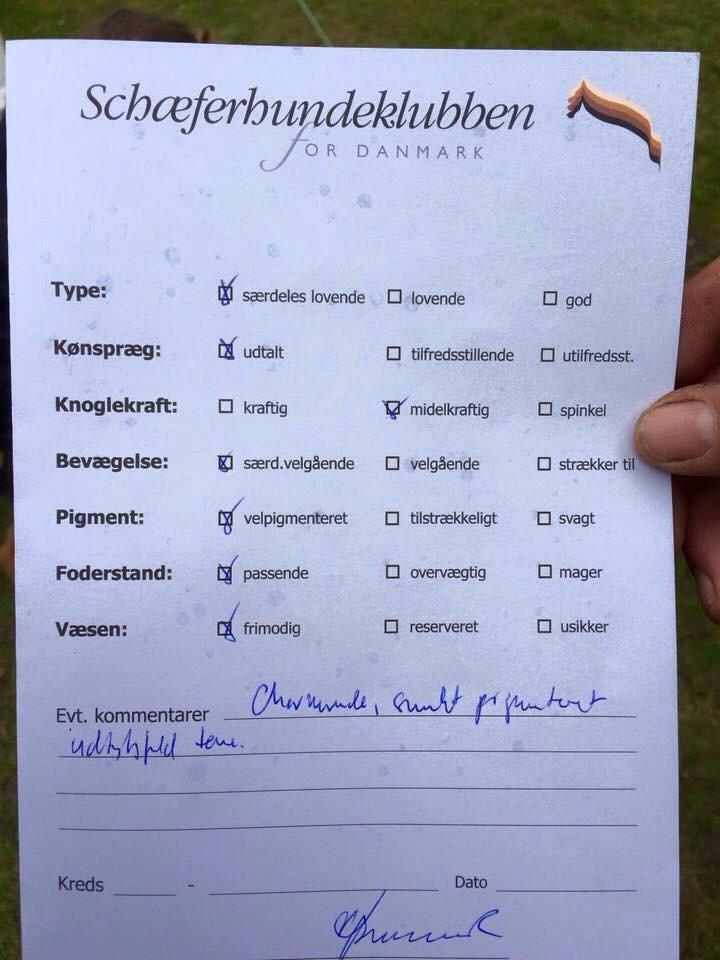 Schæferhundeklubben
FOR DANMARK
Type: særdeles lovende lovende god
Kønspræg: udtalt tilfredsstillende utilfredsst.
Knoglekraft: kraftig midelkraftig spinkel
Bevægelse: særd.velgående velgående strækker til
Pigment: velpigmenteret tilstrækkeligt svagt
Foderstand: passende overvægtig mager
Væsen: frimodig reserveret usikker
Evt. kommentarer Charmerende, smukt pigmenteret
udtryksfuld tæve.
Kreds - Dato